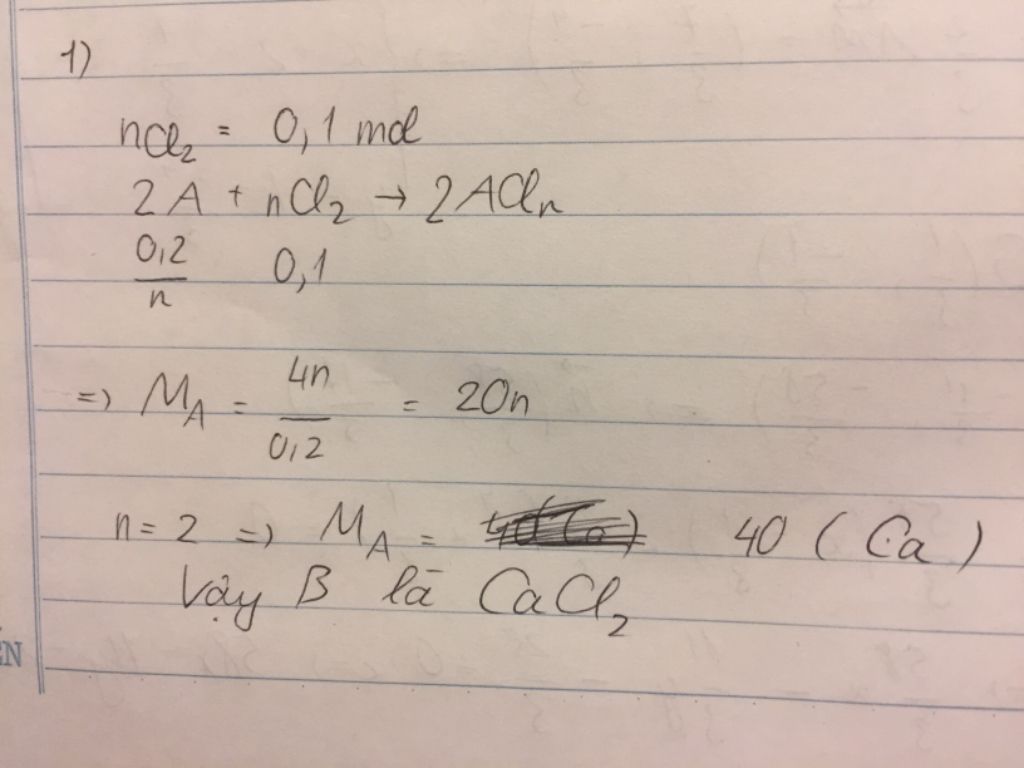 1)
nCl₂ = 0,1 mol
2A + nCl₂ → 2ACln
0,2/n 0,1
=> M_A = 4n/0,2 = 20n
n = 2 => M_A = 40 (Ca)
Vậy B là CaCl₂
ẾN